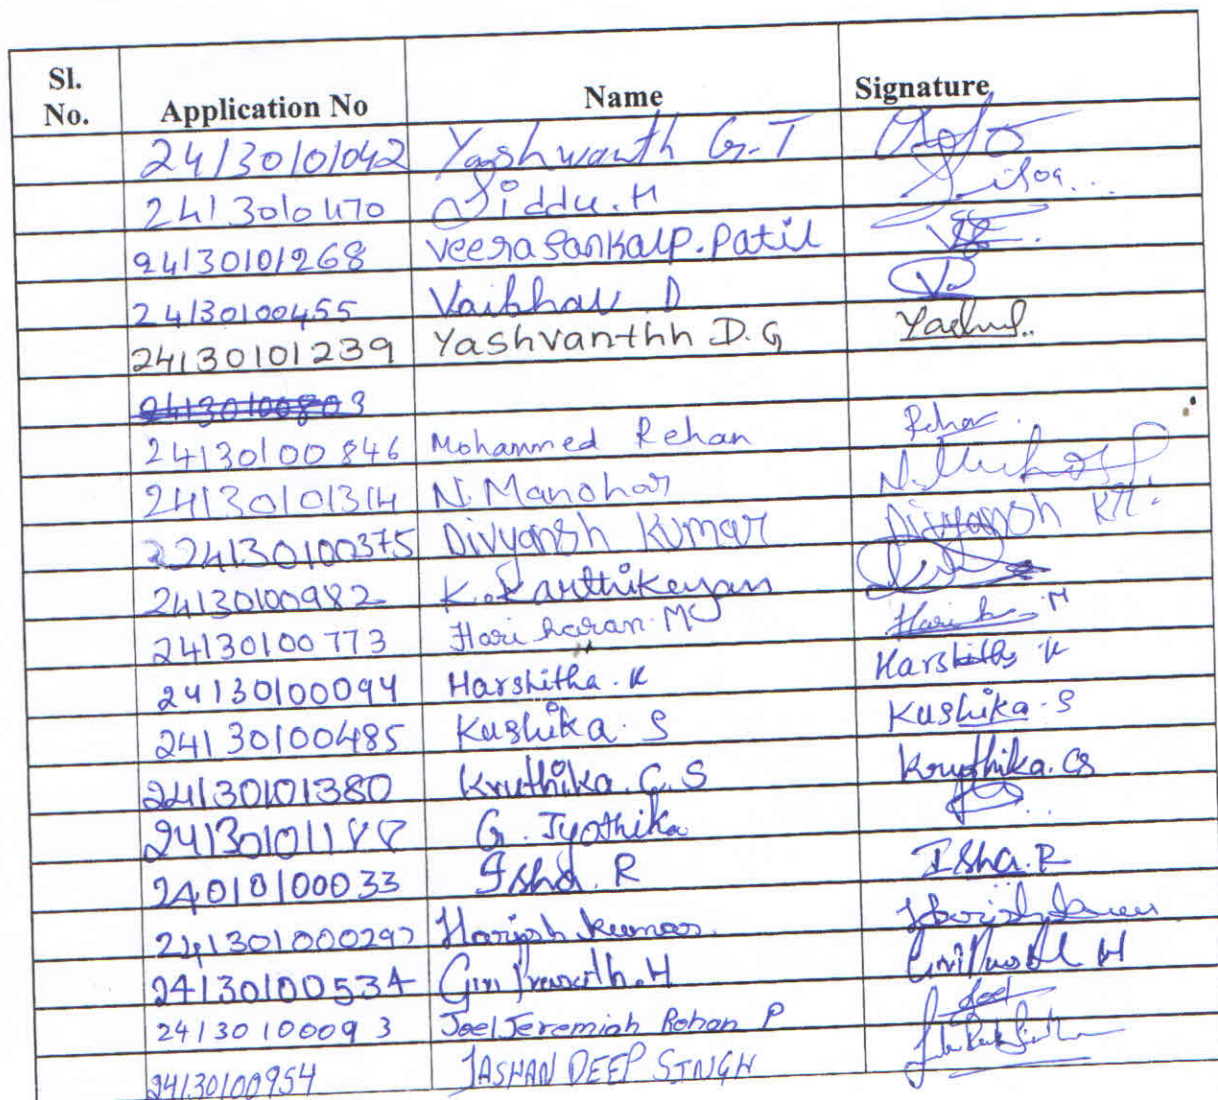 Sl. No. Application No Name Signature
24130101042 Yashwanth G.T
24130101170 Siddu.H
24130101268 Veerasankalp.Patil
24130100455 Vaibhav D
24130101239 Yashvanthh D.G
24130100803
24130100846 Mohammed Rehan Rehan
24130101314 N.Manohar
24130100375 Divyansh Kumar Divyansh KR.
24130100982 K.Karthikeyan
24130100773 Hariharan.M
24130100094 Harshitha.K Harshitha K
24130100485 Kushika.S Kushika.S
24130101380 Kruthika.C.S Kruthika.CS
24130101188 G.Jyothika
24010100033 Isha.R Isha.R
241301000297 Harish Kumar
24130100534 Giri Prasath.H
24130100093 Joel Jeremiah Rohan P Joel
24130100954 JASHAN DEEP SINGH